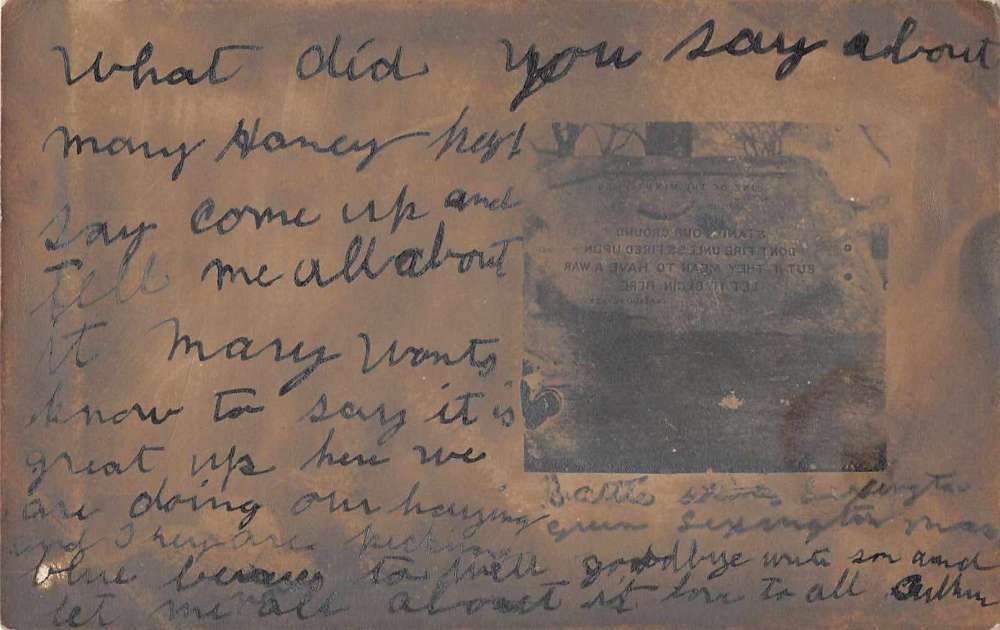 What did you say about
Mary Haney hey!
say come up and
tell me all about
it Mary wants
know to say it is
great up here we
are doing our haying
and they are picking
blue berries to sell goodbye write son and
let me all about it love to all
LINE OF THE MINUTE MEN
STAND YOUR GROUND
DON'T FIRE UNLESS FIRED UPON
BUT IF THEY MEAN TO HAVE A WAR
LET IT BEGIN HERE
Battle Stone Lexington
green Lexington Mass